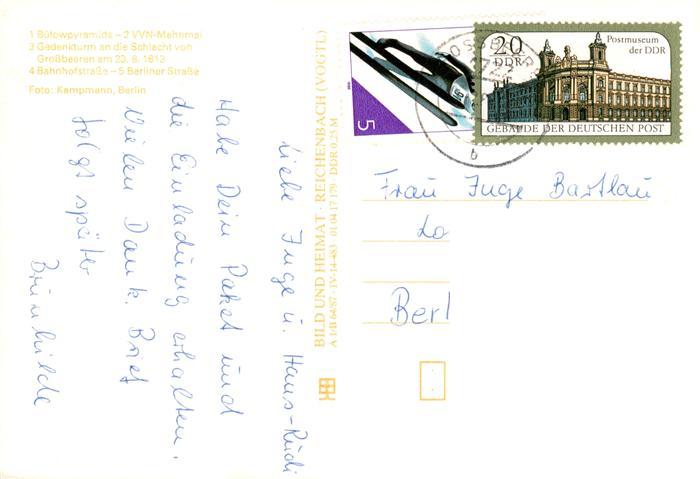 1 Bülowpyramide – 2 VVN-Mahnmal
3 Gedenkturm an die Schlacht von
Großbeeren am 23. 8. 1813
4 Bahnhofstraße – 5 Berliner Straße
Foto: Kampmann, Berlin
Liebe Inge u. Hans-Rüdi
Habe Dein Paket und
die Einladung erhalten.
Vielen Dank. Brief
folgt später
Brünhilde
BILD UND HEIMAT · REICHENBACH (VOGTL)
A 1/B 64/87 · IV-14-483 01 04 17 179 · DDR 0,25 M
5
20
DDR
Postmuseum
der DDR
GEBÄUDE DER DEUTSCHEN POST
b
Frau Inge Bartlau
Lo
Berl